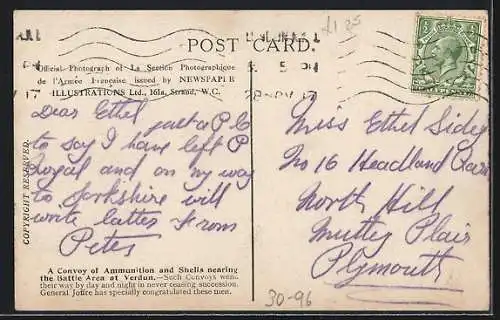 POST CARD.
£1.25
Official Photograph of La Section Photographique
de l'Armée Française issued by NEWSPAPER
ILLUSTRATIONS Ltd., 161a, Strand, W.C.
28 17
Dear Ethel
just a P.C
to say I have left P
Royal and on my way
to Yorkshire will
write latter from
Peter
COPYRIGHT RESERVED.
A Convoy of Ammunition and Shells nearing
the Battle Area at Verdun.—Such Convoys wend
their way by day and night in never ceasing succession.
General Joffre has specially congratulated these men.
Miss Ethel Sidey
No 16 Headland Park
North Hill
Mutley Plair
Plymouth
30-96